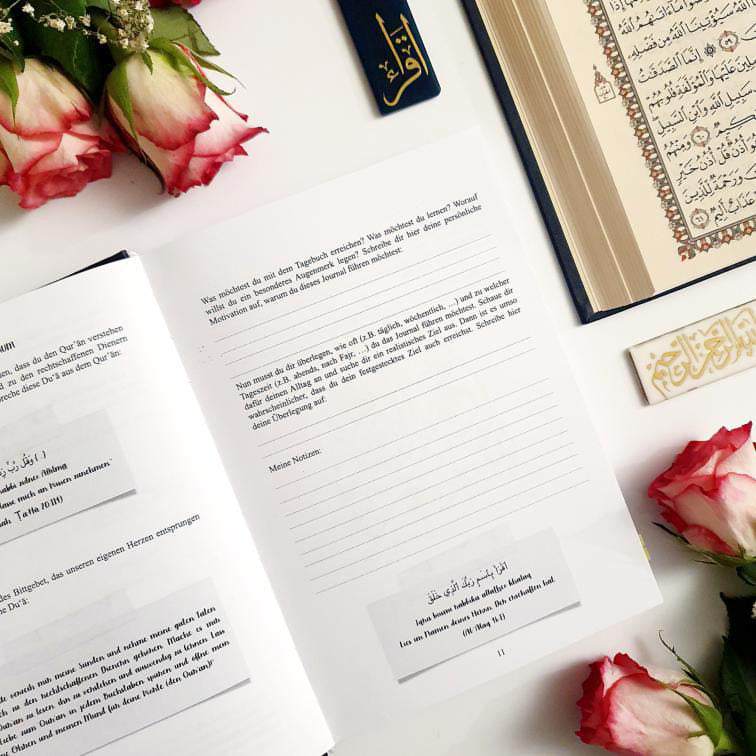 اقرأ
مَا آتَىٰهُمُ اللَّهُ
سَيُؤْتِينَا اللَّهُ مِن فَضْلِهِ
إِنَّمَا الصَّدَقَٰتُ
عَلَيْهَا وَالْمُؤَلَّفَةِ قُلُوبُهُمْ
سَبِيلِ اللَّهِ وَابْنِ السَّبِيلِ
وَمِنْهُمُ
قُلْ أُذُنُ خَيْرٍ
وَرَحْمَةٌ لِّلَّذِينَ
عَذَابٌ أَلِيمٌ
hen, dass du den Qur'ān verstehen
d zu den rechtschaffenen Dienern
reche diese Du'ā aus dem Qur'ān:
وَقُل رَّبِّ
rabbi zidnee 'ilman
Ta Ha 20:114)
des Bittgebet, das unseren eigenen Herzen entsprungen
ne Du'ā:
verzeih mir meine Sünden und nehme meine guten Taten
zu den rechtschaffenen Dienern gehören. Mache es mir
Qur'an zu lesen, ihn zu verstehen und auswendig zu lernen. Lass
Liebe zum Qur'an in jedem Buchstaben spüren und öffne mein
Ohren und meinen Mund für deine Worte (den Qur'an)!"
Was möchtest du mit dem Tagebuch erreichen? Was möchtest du lernen? Worauf
willst du ein besonderes Augenmerk legen? Schreibe dir hier deine persönliche
Motivation auf, warum du dieses Journal führen möchtest:
Nun musst du dir überlegen, wie oft (z.B. täglich, wöchentlich, ...) und zu welcher
Tageszeit (z.B. abends, nach Fajr, ...) du das Journal führen möchtest. Schaue dir
dafür deinen Alltag an und suche dir ein realistisches Ziel aus. Dann ist es umso
wahrscheinlicher, dass du dein festgestecktes Ziel auch erreichst. Schreibe hier
deine Überlegung auf:
Meine Notizen:
اقْرَأْ بِاسْمِ رَبِّكَ الَّذِي خَلَقَ
Iqra bismi rabbika allathee khalaq
Lies im Namen deines Herrn, Der erschaffen hat.
(Al-'Alaq 96:1)
11
بسم الله الرحمن الرحيم